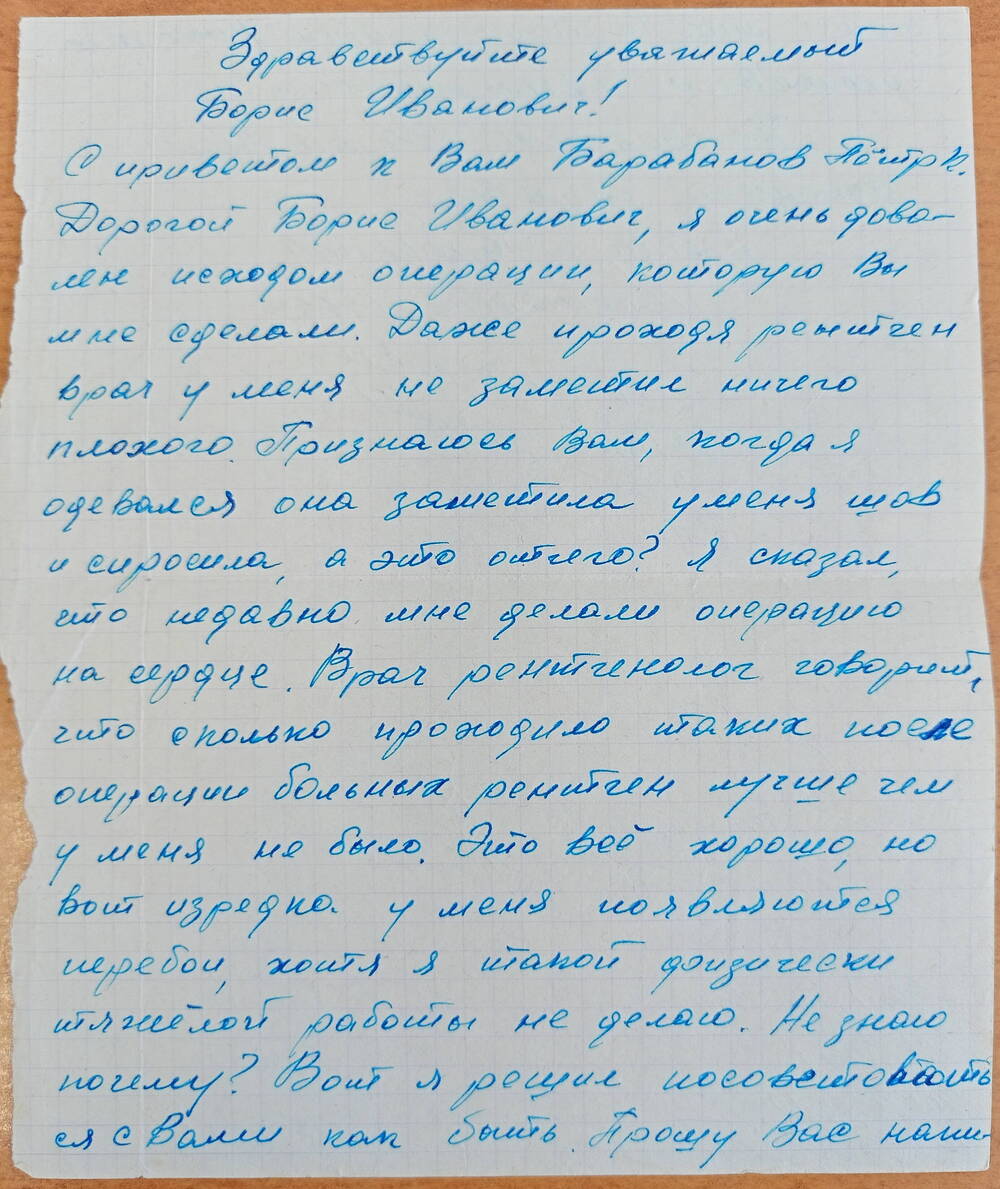 Здравствуйте уважаемый
Борис Иванович!
С приветом к Вам Барабанов Пётр К.
Дорогой Борис Иванович, я очень дово-
лен исходом операции, которую Вы
мне сделали. Даже проходя рентген
врач у меня не заметил ничего
плохого. Признаюсь Вам, когда я
одевался она заметила у меня шов
и спросила, а это отчего? Я сказал,
что недавно мне делали операцию
на сердце. Врач рентгенолог говорит,
что сколько проходило таких после
операции больных рентген лучше чем
у меня не было. Это всё хорошо, но
вот изредка у меня появляются
перебои, хотя я такой физически
тяжёлой работы не делаю. Не знаю
почему? Вот я решил посоветовать
ся с Вами как быть. Прошу Вас напи-